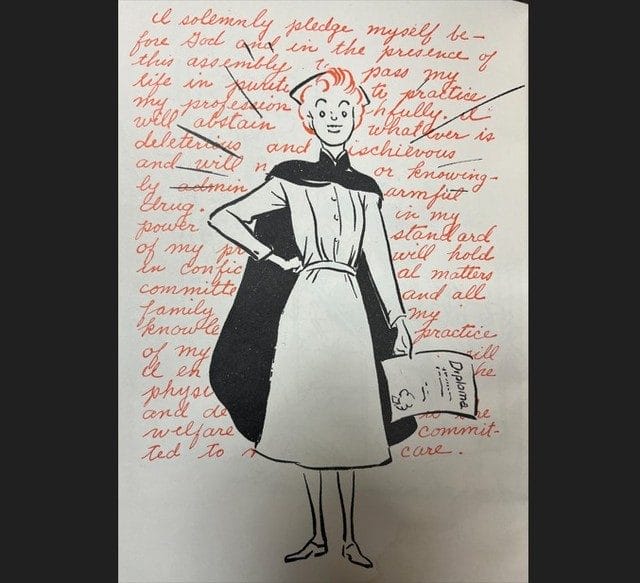 I solemnly pledge myself be-
fore God and in the presence of
this assembly pass my
life in purity to practice
my profession hfully. I
will abstain whatever is
deleterious and ischievous
and will n or knowing-
ly admin armful
drug. in my
power standard
of my pr will hold
in confid al matters
committe and all
family my
knowle practice
of my ill
I en he
physi
and de
welfare commit-
ted to care.
Diploma